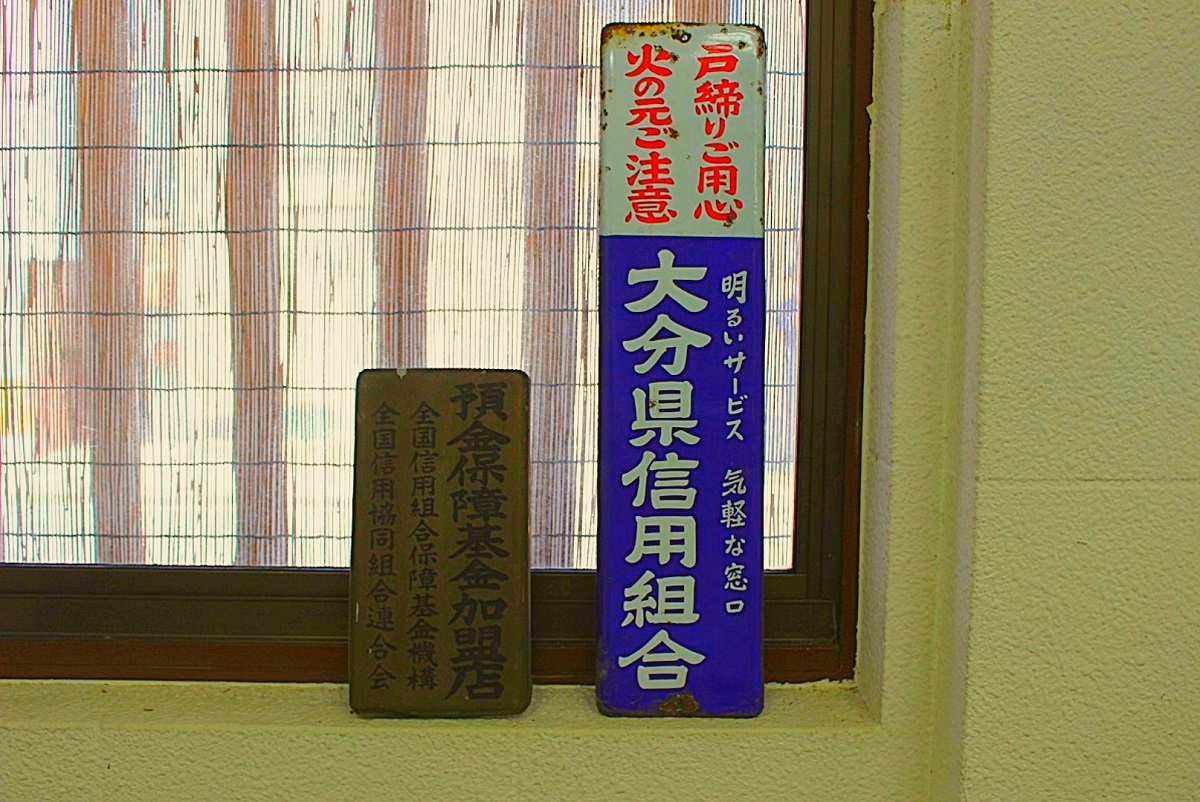 戸締りご用心
火の元ご注意
明るいサービス 気軽な窓口
大分県信用組合
預金保障基金加盟店
全国信用組合保障基金機構
全国信用協同組合連合会